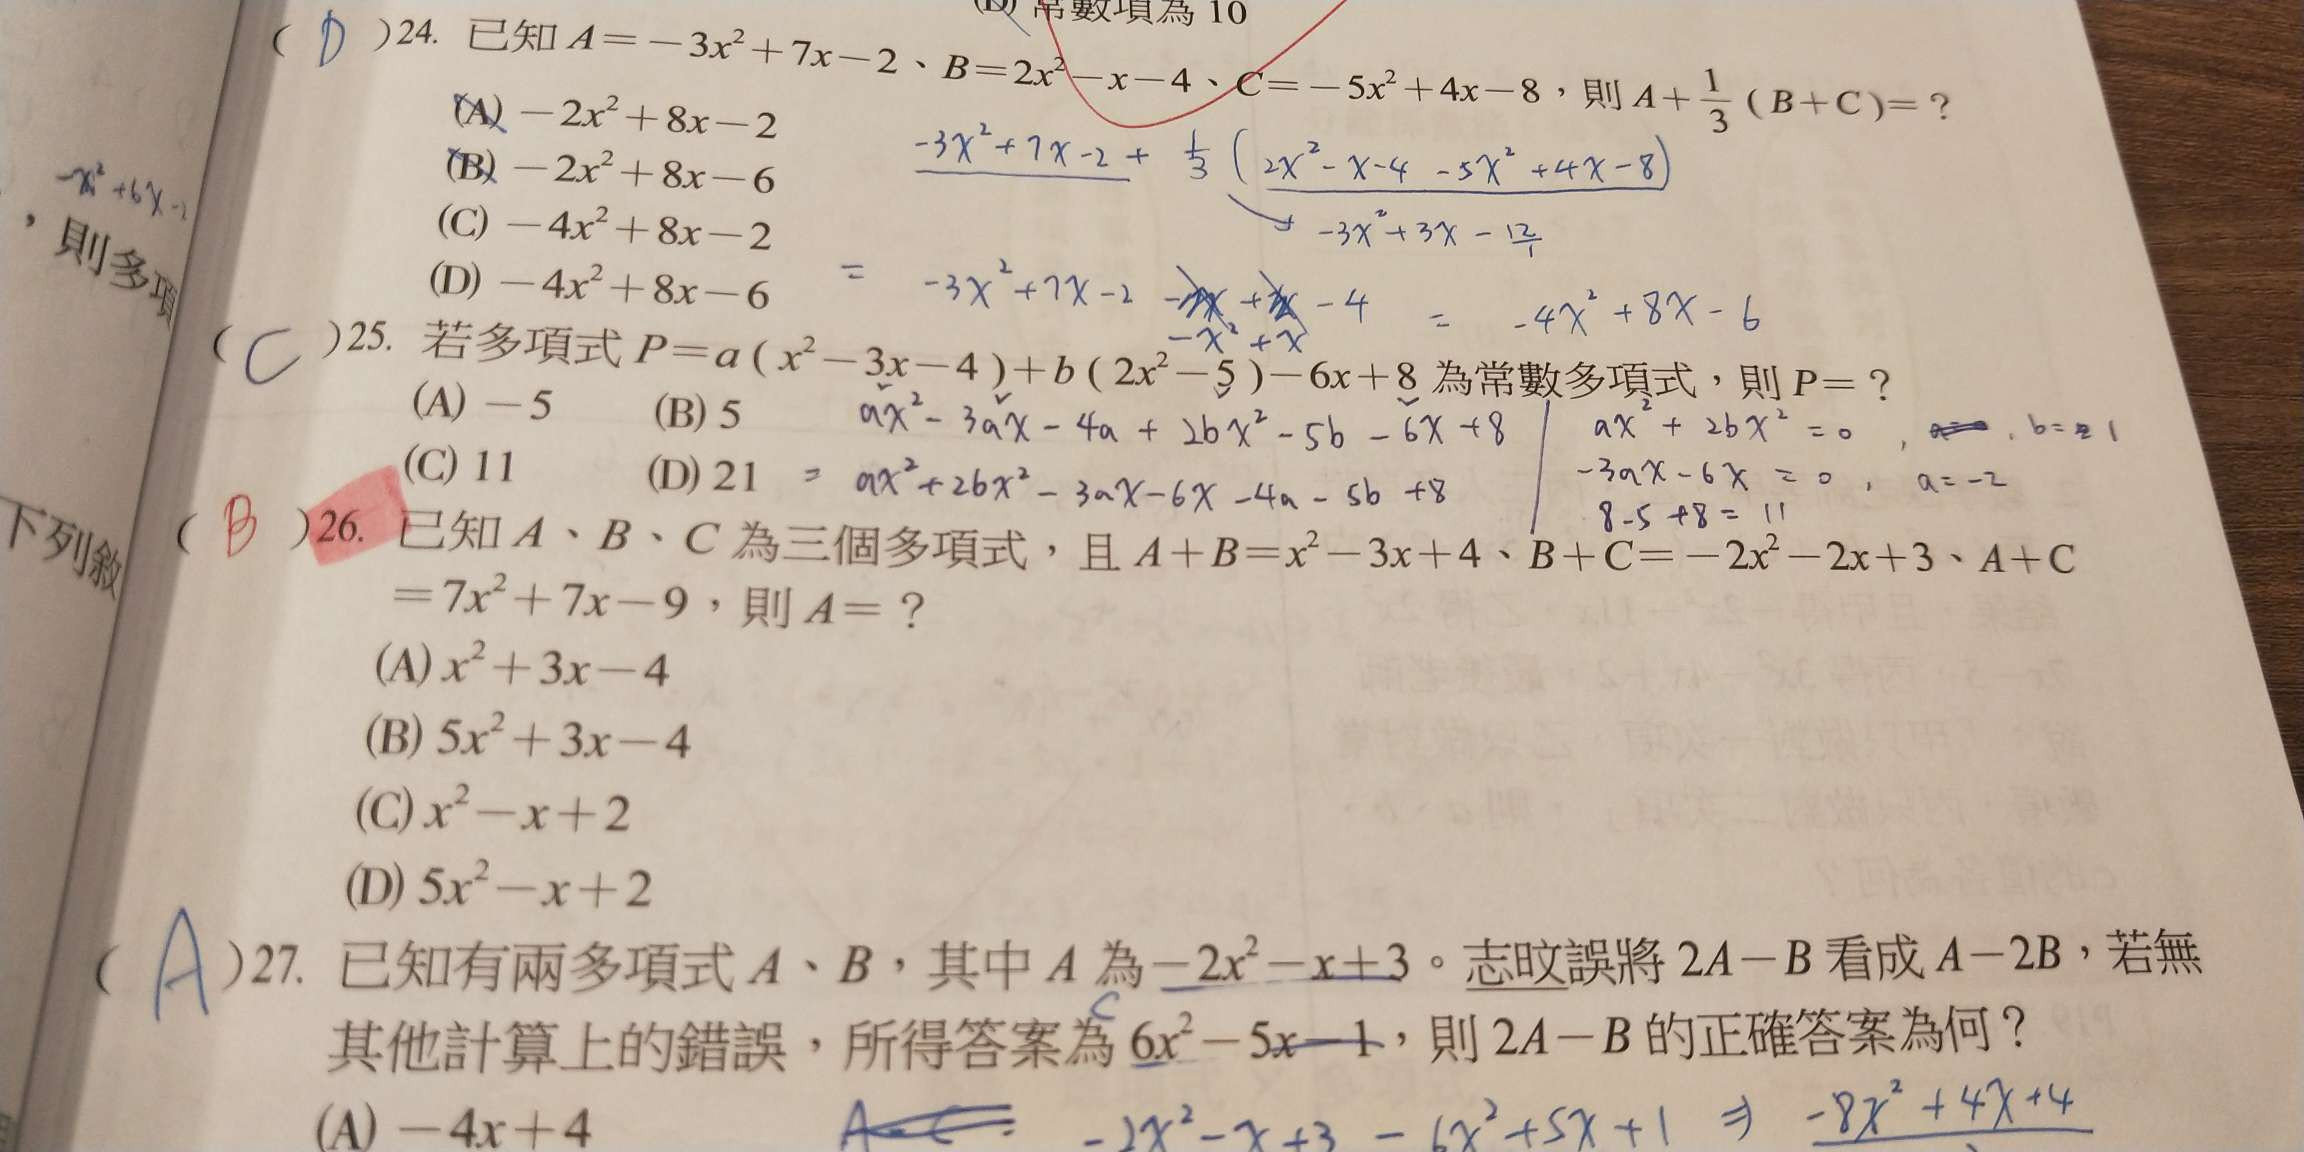 (D) 常數項為 10
( D )24. 已知 A=-3x²+7x-2、B=2x²-x-4、C=-5x²+4x-8，則 A+1/3(B+C)=?
(A) -2x²+8x-2
(B) -2x²+8x-6
(C) -4x²+8x-2
(D) -4x²+8x-6
-3x²+7x-2 + 1/3 (2x²-x-4 -5x²+4x-8)
-3x²+3x-12/1
= -3x²+7x-2 -4 = -4x²+8x-6
-x²+x
-x²+6x-2
，則多項
( C )25. 若多項式 P=a(x²-3x-4)+b(2x²-5)-6x+8 為常數多項式，則 P=?
(A) -5 (B) 5
(C) 11 (D) 21
ax²-3ax-4a+2bx²-5b-6x+8
= ax²+2bx²-3ax-6x-4a-5b+8
ax²+2bx²=0, b=1
-3ax-6x=0, a=-2
8-5+8=11
下列敘
( B )26. 已知 A、B、C 為三個多項式，且 A+B=x²-3x+4、B+C=-2x²-2x+3、A+C
=7x²+7x-9，則 A=?
(A) x²+3x-4
(B) 5x²+3x-4
(C) x²-x+2
(D) 5x²-x+2
( A )27. 已知有兩多項式 A、B，其中 A 為-2x²-x+3。志旼誤將 2A-B 看成 A-2B，若無
C
其他計算上的錯誤，所得答案為 6x²-5x-1，則 2A-B 的正確答案為何？
(A) -4x+4
A-C=
-2x²-x+3 - 6x²+5x+1 ⇒ -8x²+4x+4